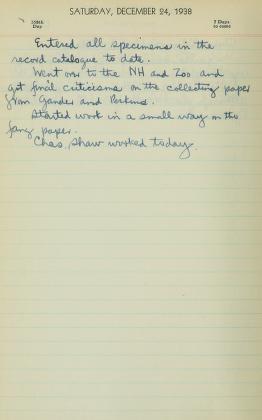 SATURDAY, DECEMBER 24, 1938
358th Day
7 Days to come
Entered all specimens in the
record catalogue to date.
Went over to the NH and Zoo and
got final criticisms on the collecting paper
from Gander and Perkins.
Started work in a small way on the
fang paper.
Chas. Shaw worked today.